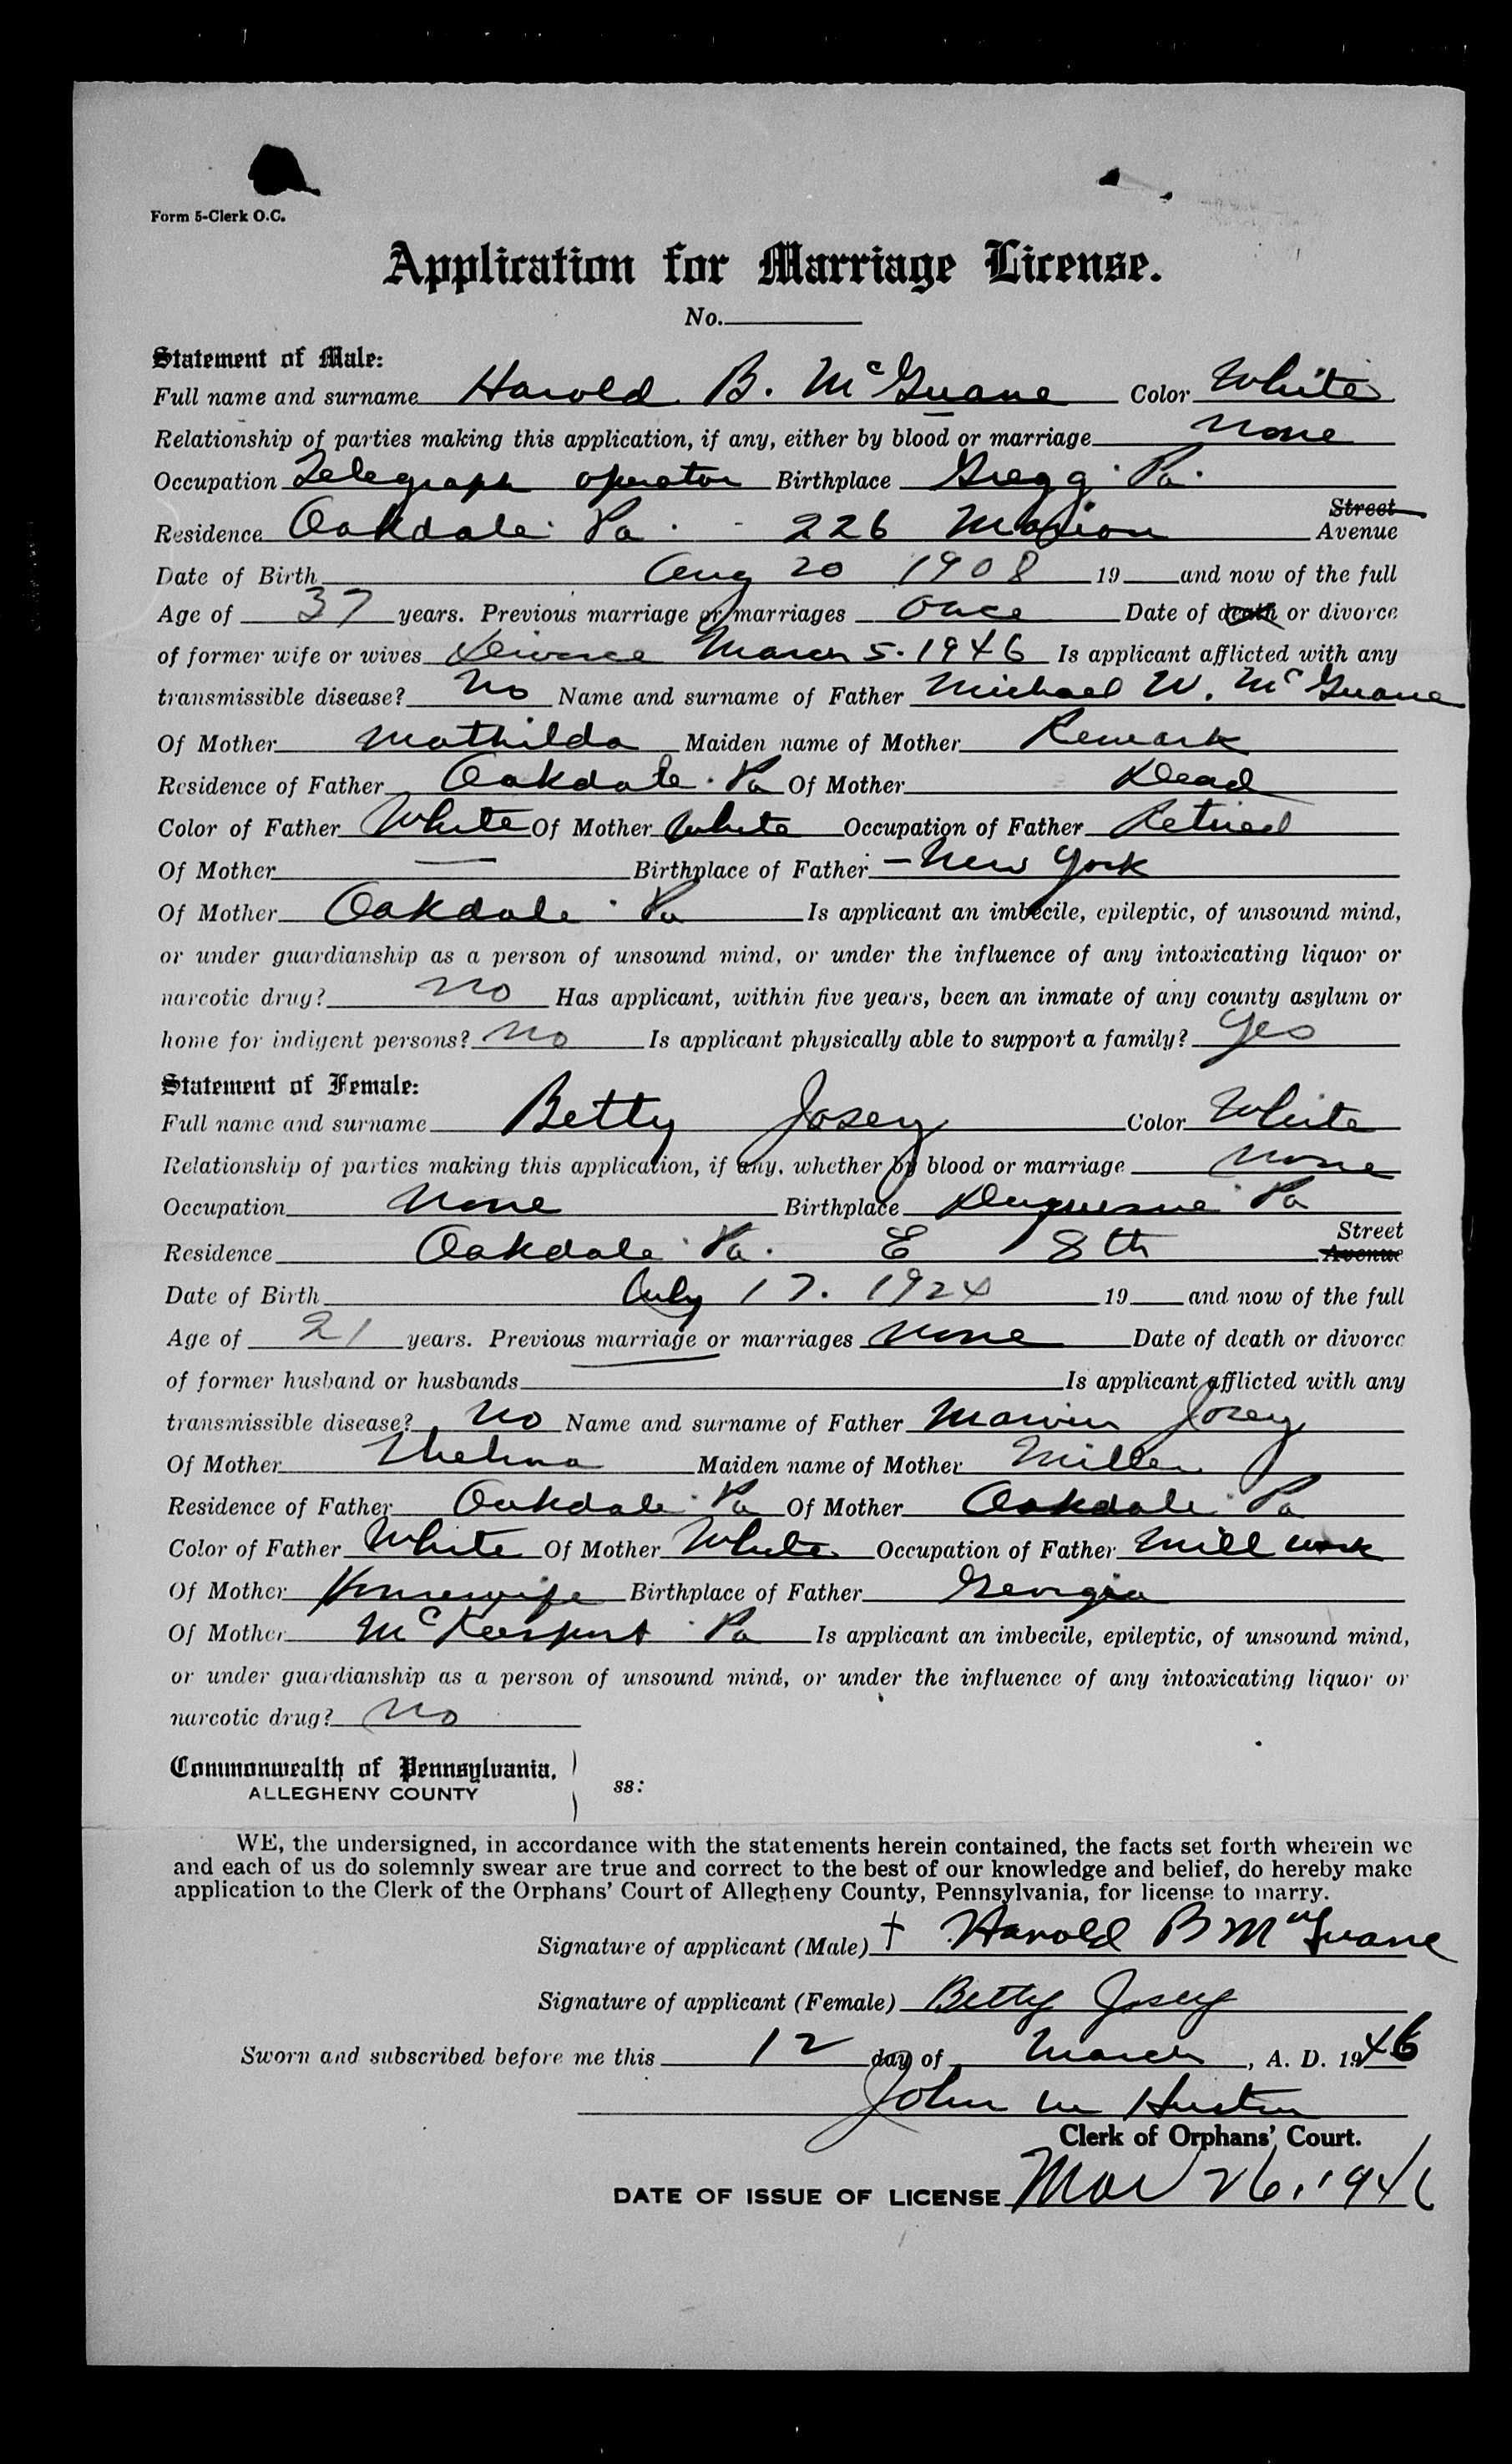 Form 5-Clerk O.C.
Application for Marriage License.
No.
Statement of Male:
Full name and surname Harold B. McGuane Color White
Relationship of parties making this application, if any, either by blood or marriage None
Occupation Telegraph operator Birthplace Gregg Pa.
Residence Oakdale Pa. - 226 Marion Street Avenue
Date of Birth Aug 20 1908 19 and now of the full
Age of 37 years. Previous marriage or marriages Once Date of death or divorce
of former wife or wives Divorce March 5. 1946 Is applicant afflicted with any
transmissible disease? No Name and surname of Father Michael W. McGuane
Of Mother Mathilda Maiden name of Mother Remark
Residence of Father Oakdale. Pa Of Mother Dead
Color of Father White Of Mother White Occupation of Father Retired
Of Mother — Birthplace of Father — New York
Of Mother Oakdale. Pa Is applicant an imbecile, epileptic, of unsound mind,
or under guardianship as a person of unsound mind, or under the influence of any intoxicating liquor or
narcotic drug? No Has applicant, within five years, been an inmate of any county asylum or
home for indigent persons? No Is applicant physically able to support a family? Yes
Statement of Female:
Full name and surname Betty Josey Color White
Relationship of parties making this application, if any, whether by blood or marriage None
Occupation None Birthplace Duquesne Pa
Residence Oakdale Pa. E 8th Street Avenue
Date of Birth July 17. 1924 19 and now of the full
Age of 21 years. Previous marriage or marriages None Date of death or divorce
of former husband or husbands Is applicant afflicted with any
transmissible disease? No Name and surname of Father Marvin Josey
Of Mother Thelma Maiden name of Mother Miller
Residence of Father Oakdale Pa Of Mother Oakdale Pa
Color of Father White Of Mother White Occupation of Father Mill work
Of Mother Housewife Birthplace of Father Georgia
Of Mother McKeesport Pa Is applicant an imbecile, epileptic, of unsound mind,
or under guardianship as a person of unsound mind, or under the influence of any intoxicating liquor or
narcotic drug? No
Commonwealth of Pennsylvania,
ALLEGHENY COUNTY ss:
WE, the undersigned, in accordance with the statements herein contained, the facts set forth wherein we
and each of us do solemnly swear are true and correct to the best of our knowledge and belief, do hereby make
application to the Clerk of the Orphans' Court of Allegheny County, Pennsylvania, for license to marry.
Signature of applicant (Male) + Harold B McGuane
Signature of applicant (Female) Betty Josey
Sworn and subscribed before me this 12 day of March, A. D. 1946
John M Huston
Clerk of Orphans' Court.
DATE OF ISSUE OF LICENSE Mar 26, 1946